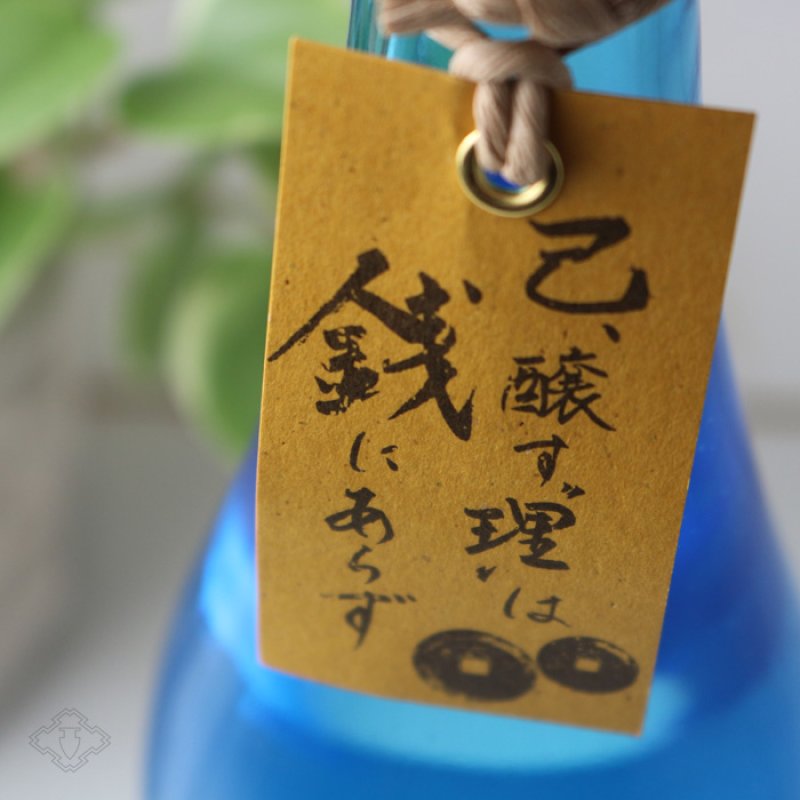 己、醸す理は
銭にあらず